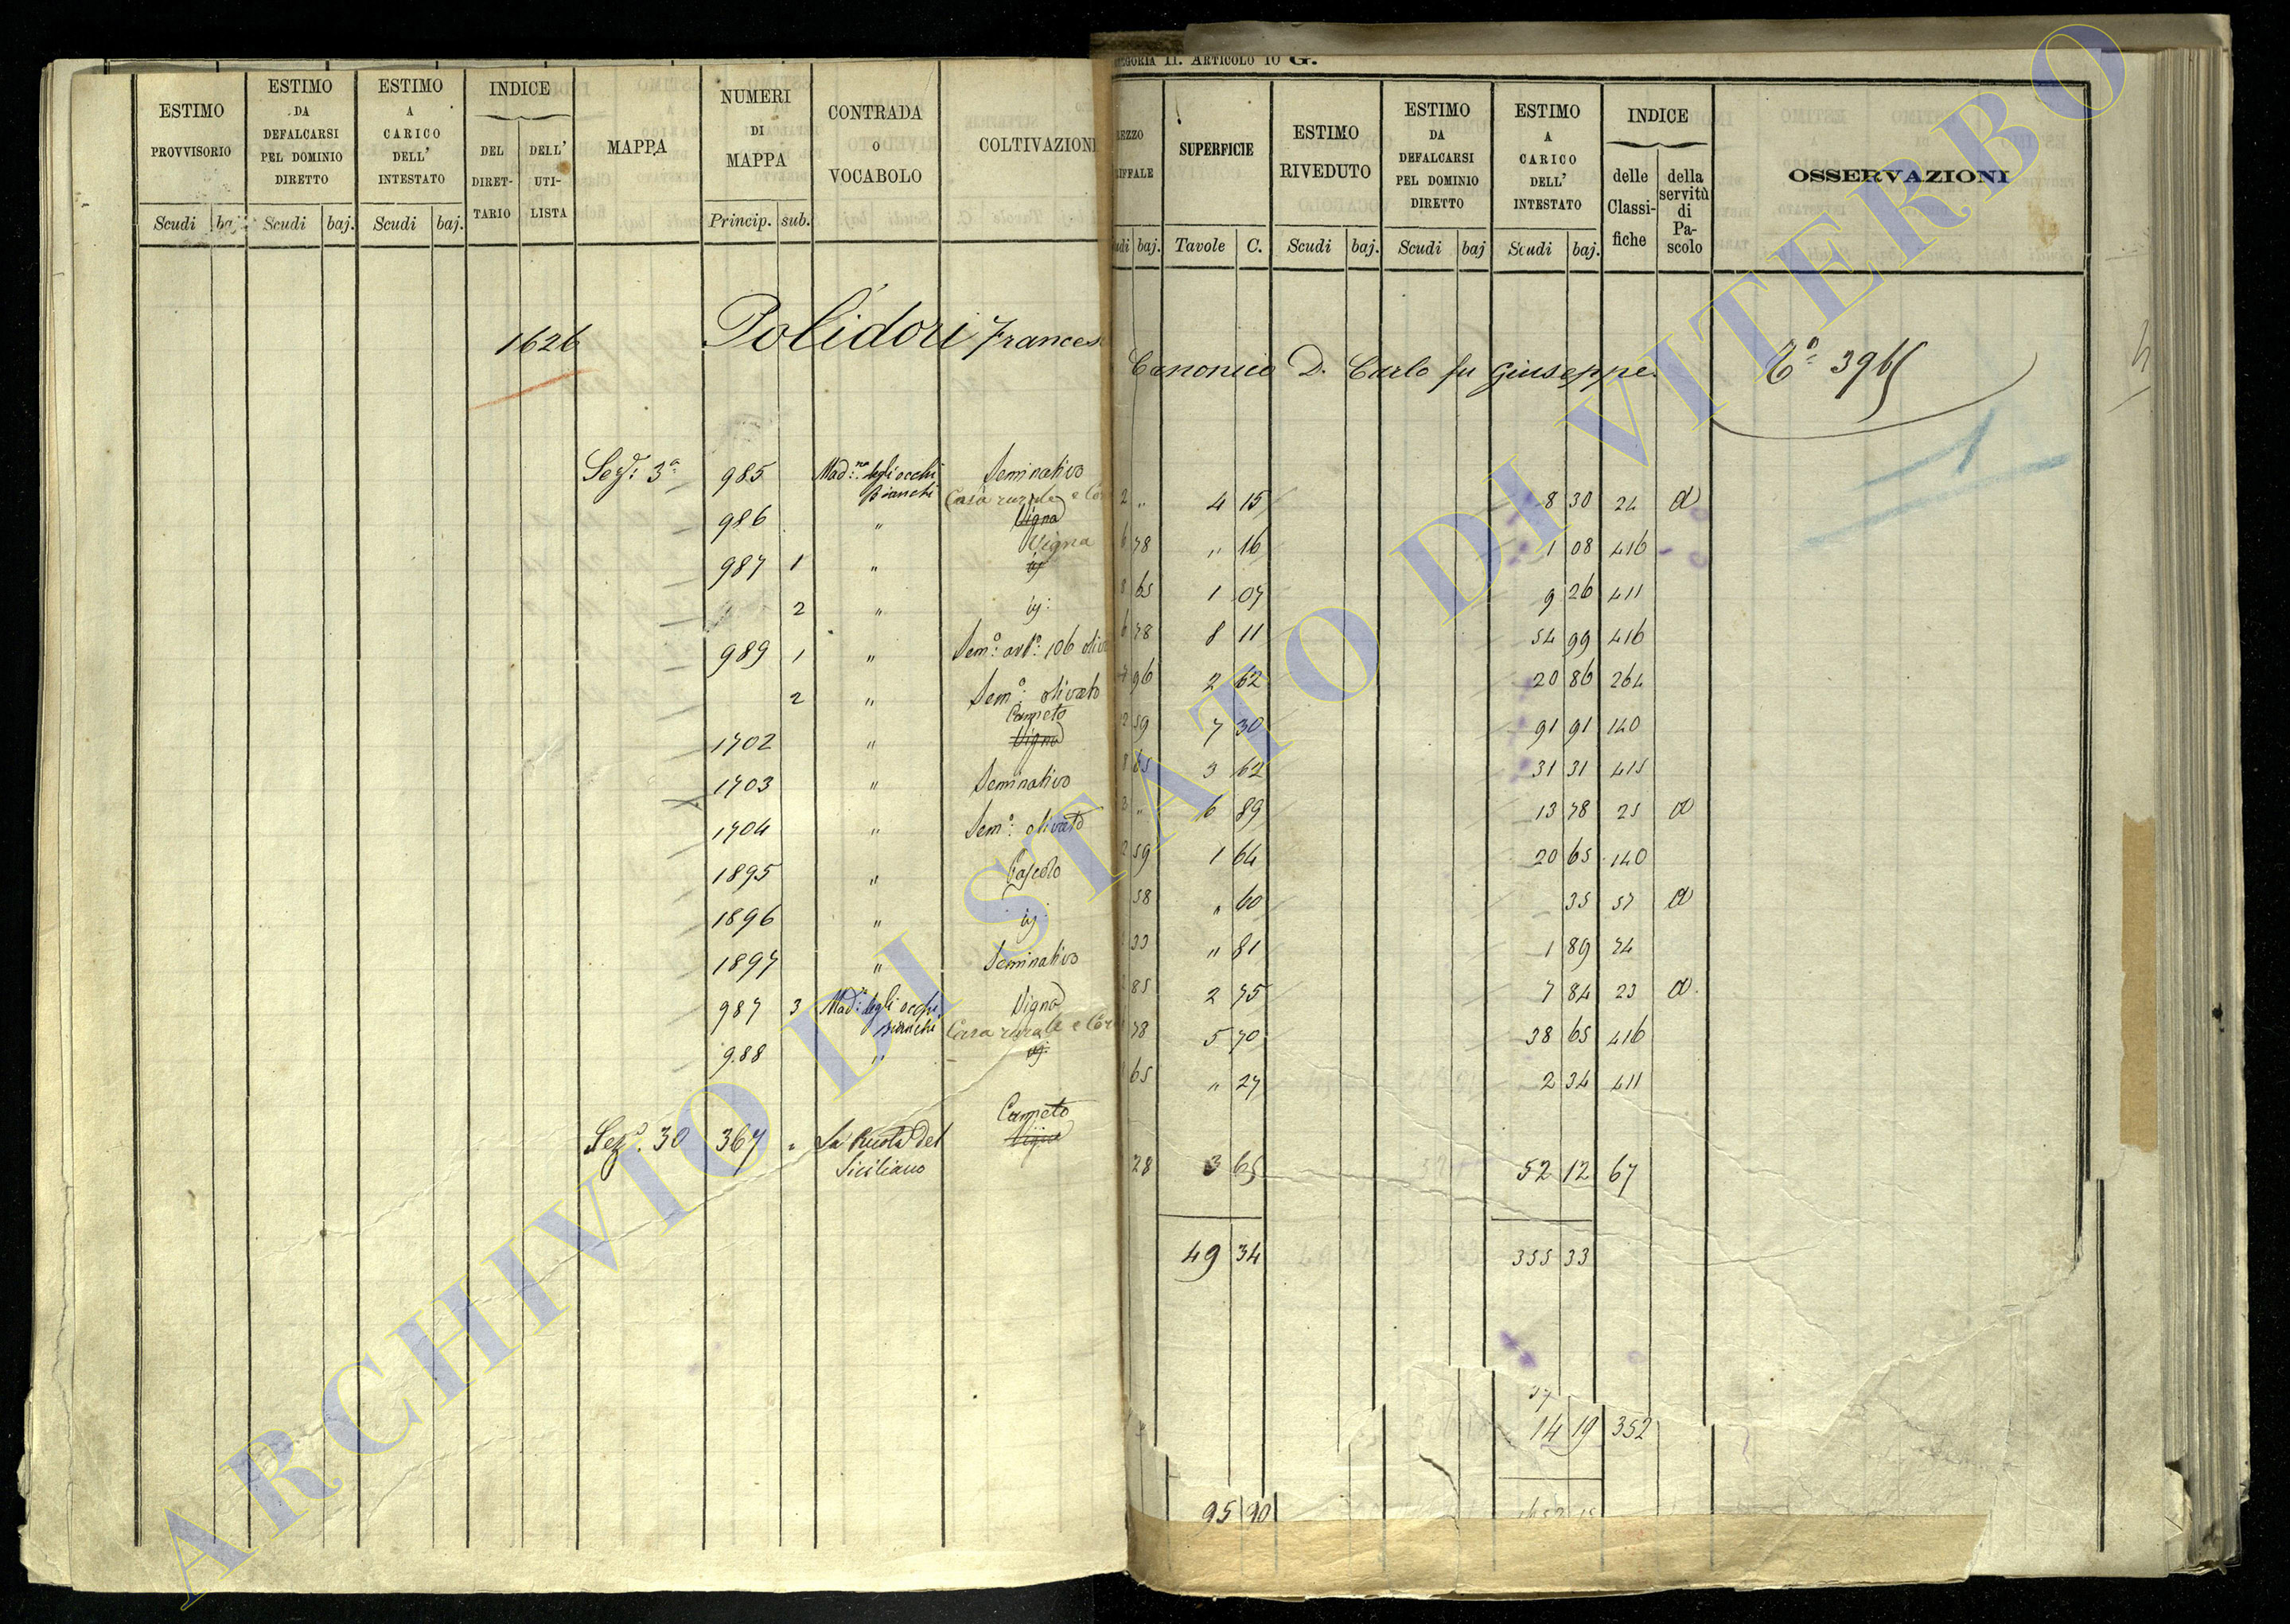 ESTIMO PROVVISORIO Scudi baj.
ESTIMO DA DEFALCARSI PEL DOMINIO DIRETTO Scudi baj.
ESTIMO A CARICO DELL' INTESTATO Scudi baj.
INDICE DEL DIRET- TARIO DELL' UTI- LISTA
MAPPA
NUMERI DI MAPPA Princip. sub.
CONTRADA O VOCABOLO
COLTIVAZIONI
1626 Polidori Frances
Sez.e 3a 985 Mad:na degli occhi Bianchi Seminativo
Casa rurale e
986 " Vigna
Vigna
987 1 " id
2 " id:
989 1 " Sem:o arb:o 106 olivi
2 " Sem:o olivato
Canneto
1702 " Vigna
1703 " Seminativo
1704 " Sem:o olivato
1895 " Pascolo
1896 " id
1897 " Seminativo
987 3 Mad:na degli occhi bianchi Vigna
Casa rurale e
988 " id:
Canneto
Sez.e 30 367 " La Ruota del Siciliano Vigna
II. ARTICOLO 10 G.
baj.
SUPERFICIE Tavole C.
ESTIMO RIVEDUTO Scudi baj.
ESTIMO DA DEFALCARSI PEL DOMINIO DIRETTO Scudi baj
ESTIMO A CARICO DELL' INTESTATO Scudi baj.
INDICE delle Classi- fiche della servitù di Pa- scolo
OSSERVAZIONI
Canonico D. Carlo fu Giuseppe.
2 " 4 15 8 30 24 a
6 78 " 16 1 08 416
8 65 1 07 9 26 411
6 78 8 11 54 99 416
7 96 2 62 20 86 264
2 59 7 30 91 91 140
8 65 3 62 31 31 415
" 6 89 13 78 25 a
2 59 1 64 20 65 140
58 " 60 35 57 a
33 " 81 1 89 74
85 2 75 7 84 23 a
78 5 70 38 65 416
65 " 27 2 34 411
28 3 65 52 12 67
49 34 355 33
14 19 352
95 90
ARCHIVIO DI STATO DI VITERBO